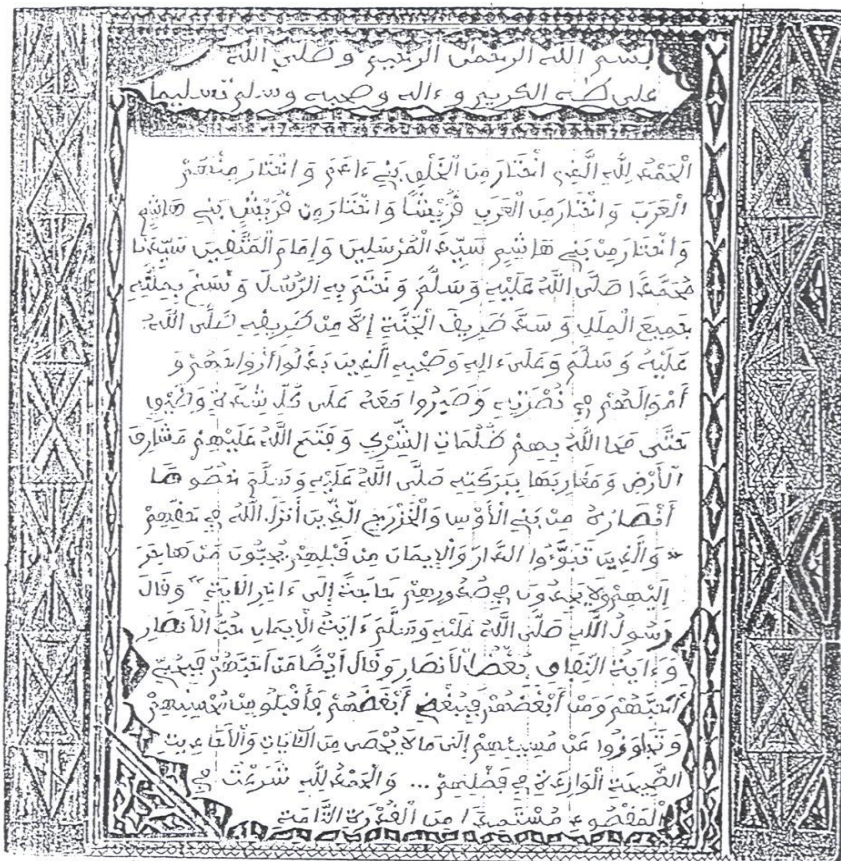 بسم الله الرحمن الرحيم وصلى الله
على طه الكريم وءاله وصحبه وسلم تسليما
اَلْحَمْدُ لِلَّهِ الَّذِي اخْتَارَ مِنَ الْخَلْقِ بَنِي ءَادَمَ وَاخْتَارَ مِنْهُمْ
الْعَرَبَ وَاخْتَارَ مِنَ الْعَرَبِ قُرَيْشًا وَاخْتَارَ مِنْ قُرَيْشٍ بَنِي هَاشِمٍ
وَاخْتَارَ مِنْ بَنِي هَاشِمٍ سَيِّدَ الْمُرْسَلِينَ وَإِمَامَ الْمُتَّقِينَ سَيِّدَنَا
مُحَمَّدًا صَلَّى اللَّهُ عَلَيْهِ وَسَلَّمَ وَخَتَمَ بِهِ الرُّسُلَ وَنَسَخَ بِمِلَّتِهِ
جَمِيعَ الْمِلَلِ وَسَدَّ طَرِيقَ الْجَنَّةِ إِلَّا مِنْ طَرِيقِهِ صَلَّى اللَّهُ
عَلَيْهِ وَسَلَّمَ وَعَلَى ءَالِهِ وَصَحْبِهِ الَّذِينَ بَذَلُوا أَرْوَاحَهُمْ وَ
أَمْوَالَهُمْ فِي نُصْرَتِهِ وَصَبَرُوا مَعَهُ عَلَى كُلِّ شِدَّةٍ وَضِيقٍ
حَتَّى مَحَا اللَّهُ بِهِمْ ظُلُمَاتِ الشِّرْكِ وَفَتَحَ اللَّهُ عَلَيْهِمْ مَشَارِقَ
الْأَرْضِ وَمَغَارِبَهَا بِبَرَكَتِهِ صَلَّى اللَّهُ عَلَيْهِ وَسَلَّمَ خُصُوصًا
أَنْصَارُهُ مِنْ بَنِي الْأَوْسِ وَالْخَزْرَجِ الَّذِينَ أَنْزَلَ اللَّهُ فِي حَقِّهِمْ
"وَالَّذِينَ تَبَوَّءُوا الدَّارَ وَالْإِيمَانَ مِنْ قَبْلِهِمْ يُحِبُّونَ مَنْ هَاجَرَ
إِلَيْهِمْ وَلَا يَجِدُونَ فِي صُدُورِهِمْ حَاجَةً إِلَى ءَاخِرِ الْآيَةِ" وَقَالَ
رَسُولُ اللَّهِ صَلَّى اللَّهُ عَلَيْهِ وَسَلَّمَ ءَايَةُ الْإِيمَانِ حُبُّ الْأَنْصَارِ
وَءَايَةُ النِّفَاقِ بُغْضُ الْأَنْصَارِ وَقَالَ أَيْضًا مَنْ أَحَبَّهُمْ فَبِحُبِّي
أَحَبَّهُمْ وَمَنْ أَبْغَضَهُمْ فَبِبُغْضِي أَبْغَضَهُمْ فَأَقْبِلُوا مِنْ مُحْسِنِهِمْ
وَتَجَاوَزُوا عَنْ مُسِيئِهِمْ إِلَى مَا لَا يُحْصَى مِنَ الْآيَاتِ وَالْأَحَادِيثِ
الصَّحِيحَةِ الْوَارِدَةِ فِي فَضْلِهِمْ ... وَالْحَمْدُ لِلَّهِ شَرَعْتُ فِي
الْمَقْصُودِ مُسْتَمِدًّا مِنَ الْقُدْرَةِ التَّامَّةِ